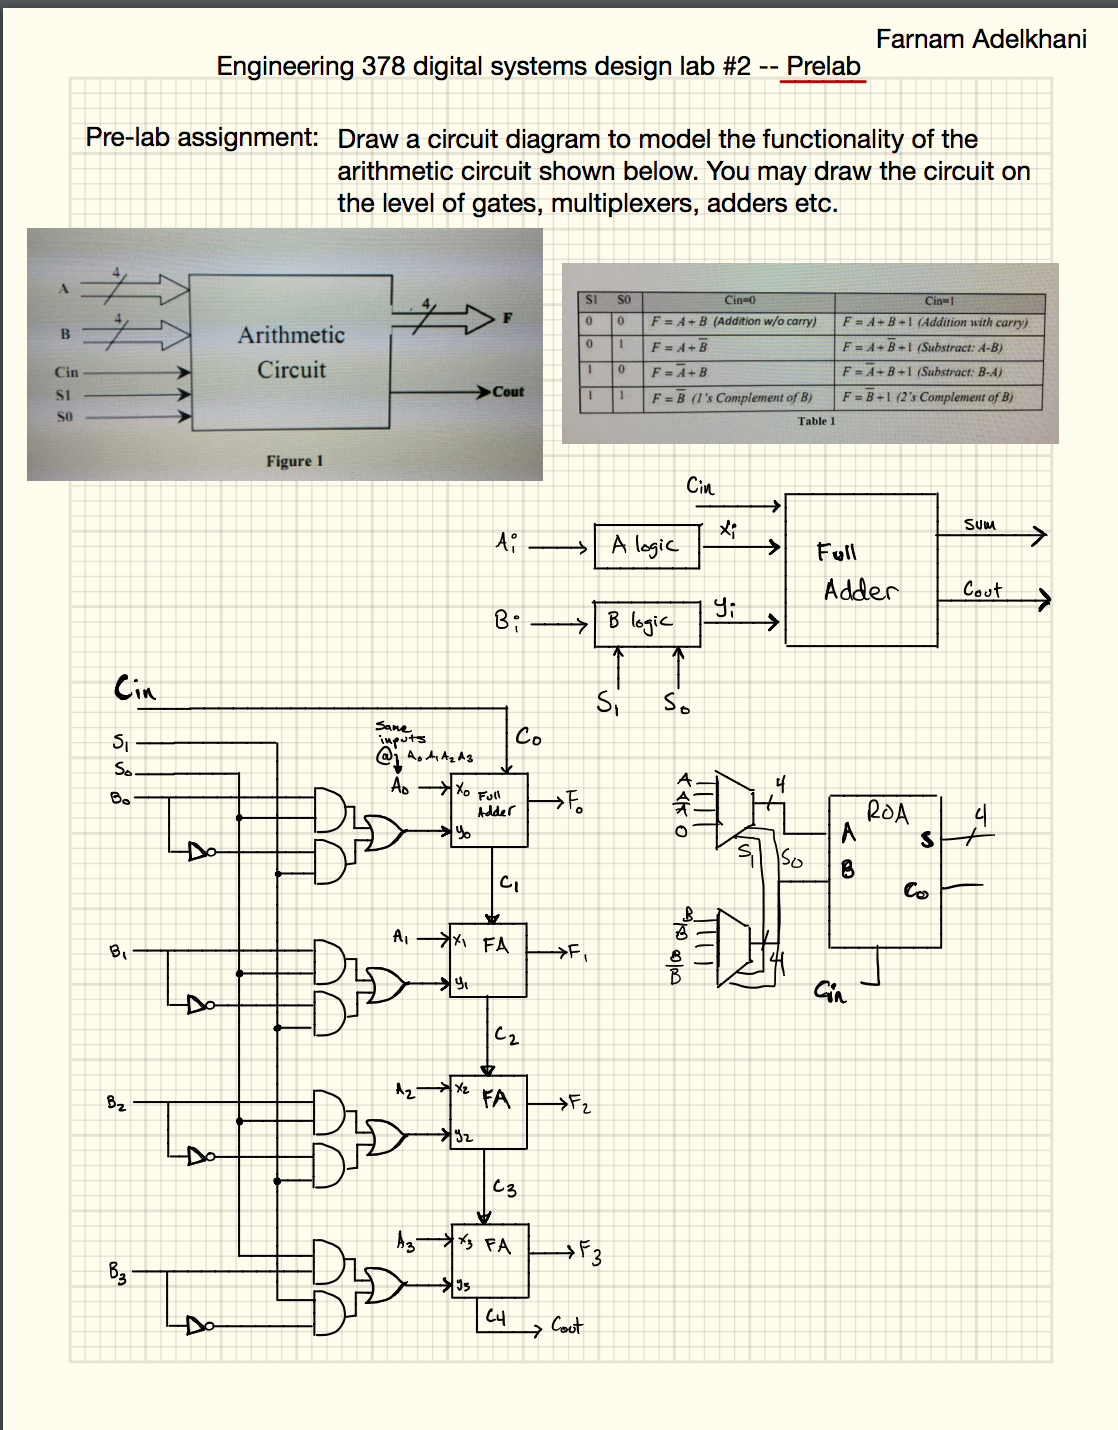 Farnam Adelkhani
Engineering 378 digital systems design lab #2 -- Prelab
Pre-lab assignment: Draw a circuit diagram to model the functionality of the
arithmetic circuit shown below. You may draw the circuit on
the level of gates, multiplexers, adders etc.
A 4
B 4
Cin
S1
S0
Arithmetic
Circuit
4 F
Cout
Figure 1
S1 S0 Cin=0 Cin=1
0 0 F = A + B (Addition w/o carry) F = A + B + 1 (Addition with carry)
0 1 F = A + B̅ F = A + B̅ + 1 (Substract: A-B)
1 0 F = A̅ + B F = A̅ + B + 1 (Substract: B-A)
1 1 F = B̅ (1's Complement of B) F = B̅ + 1 (2's Complement of B)
Table 1
Cin
Ai A logic xi
Bi B logic yi
S1 S0
Full
Adder
Sum
Cout
Cin
S1
S0
B0
Same
inputs
@ A0 A1 A2 A3
C0
A0 X0 Full
Adder
y0
F0
C1
B1
A1 X1 FA F1
y1
C2
B2
A2 X2 FA F2
y2
C3
B3
A3 X3 FA F3
y3
C4 Cout
A
A
A̅
0
4
S1 S0
B
B̅
B
B̅
4
ROA
A S 4
B
Co
Cin